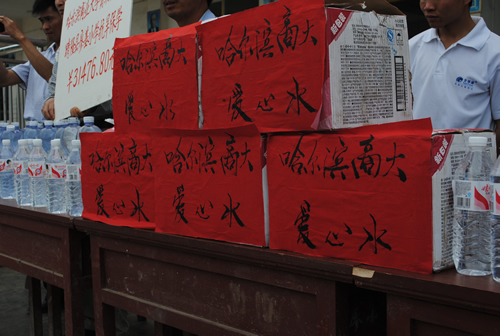 ¥31476.80
哈尔滨商大
爱心水
哈尔滨商大
爱心水
哈尔滨商大
爱心水
哈尔滨商大
爱心水
哈尔滨商大
爱心水